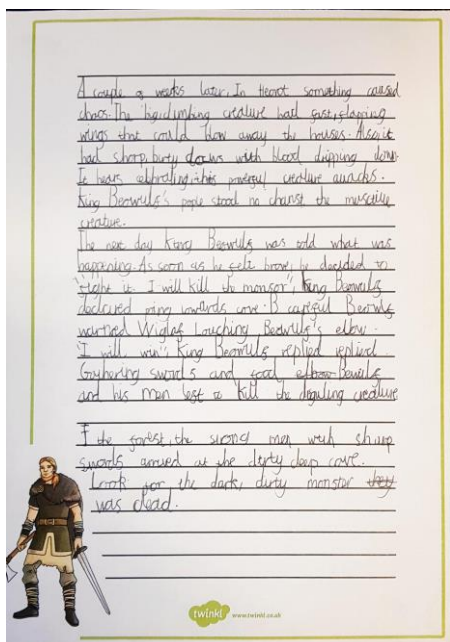 A couple of weeks later, In Heorot something caused
chaos. The big, dumbing creature had fast, flapping
wings that could blow away the houses. Also it
had sharp, dirty claws with blood dripping down.
It hears celebrating, this powerful creature attacks.
King Beowulf's pepie stood no chanst the
creature.
The next day King Beowulf was told what was
happening. As soon as he felt brave, he decided to
fight it. I will kill the monsor", King Beowulf
declared towards cave. B careful Beowulf
warned Wiglaf touching Beowulf's elbow.
"I will win", King Beowulf replied replied.
Gathering swords and food Bewulf
and his men lest to kill the creature
I the forest, the strong men with sharp
swords arrived at the dirty deep cave.
Look for the dark, dirty monster they
was dead.
twinkl www.twinkl.co.uk